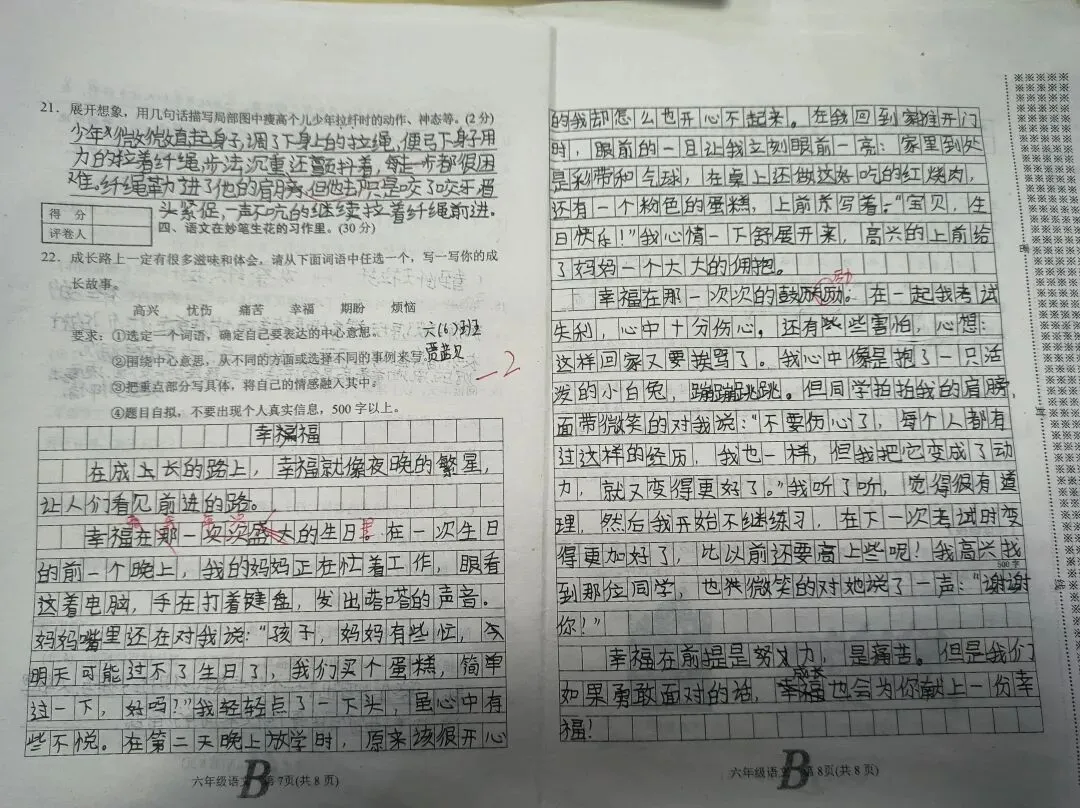 21. 展开想象，用几句话描写局部图中瘦高个儿少年拉纤时的动作、神态等。(2分)
少年微微直起身子，调了下身上的拉绳，便弓下身子用
力的拉着纤绳，步法沉重还颤抖着，每走一步都很困
难。纤绳勒进了他的肩膀，但他去只是咬了咬牙，眉
头紧促，一声不吭的继续拉着纤绳前进。
得 分
评卷人
四、语文在妙笔生花的习作里。(30分)
22. 成长路上一定有很多滋味和体会，请从下面词语中任选一个，写一写你的成
长故事。
高兴 忧伤 痛苦 幸福 期盼 烦恼
要求：①选定一个词语，确定自己要表达的中心意思。
六(6)班
②围绕中心意思，从不同的方面或选择不同的事例来写。
③把重点部分写具体，将自己的情感融入其中。
-2
④题目自拟，不要出现个人真实信息，500字以上。
幸福
在成长的路上，幸福就像夜晚的繁星，
让人们看见前进的路。
幸福在那一次次盛大的生日里。在一次生日
的前一个晚上，我的妈妈正在忙着工作，眼看
这着电脑，手在打着键盘，发出嗒嗒的声音。
妈妈嘴里还在对我说：“孩子，妈妈有些忙，
明天可能过不了生日了，我们买个蛋糕，简单
过一下，好吗？”我轻轻点了一下头，虽心中有
些不悦。在第二天晚上放学时，原来该很开心
六年级语文 B 第7页(共8页)
的我却怎么也开心不起来。在我回到家推开门
时，眼前的一目让我立刻眼前一亮：家里到处
是彩带和气球，在桌上还做达好吃的红烧肉，
还有一个粉色的蛋糕，上前条写着：“宝贝，生
日快乐！”我心情一下舒展开来，高兴的上前给
了妈妈一个大大的拥抱。
励
幸福在那一次次的鼓励。在一起我考试
失利，心中十分伤心。还有些害怕，心想：
这样回家又要挨骂了。我心中像是抱了一只活
发的小白兔，蹦蹦跳跳。但同学拍拍我的肩膀，
面带微笑的对我说：“不要伤心了，每个人都有
过这样的经历，我也一样，但我把它变成了动
力，就又变得更好了。”我听了听，觉得很有道
理，然后我开始不继练习，在下一次考试时变
得更加好了，比以前还要高上些呢！我高兴找
500字
到那位同学，也微笑的对她说了一声：“谢谢
你！”
幸福在前提是努力，是痛苦。但是我们
如果勇敢面对的话，成长也会为你献上一份幸
福！
六年级语文 B 第8页(共8页)